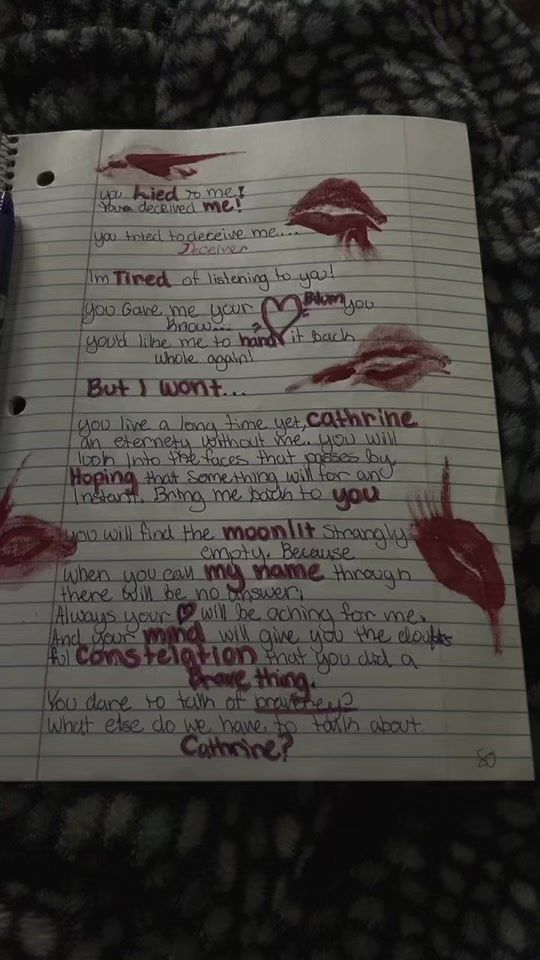 you Lied to me!
You deceived me!
you tried to deceive me....
Deceiver
Im Tired of listening to you!
you Gave me your ♡ you
know...
you'd like me to hand it back
whole again!
But I wont...
you live a long time yet, Cathrine
an eternety without me. you will
look into the faces that passes by.
Hoping that something will for an
Instant. Bring me back to you
you will find the moonlit strangly
empty. Because
when you call my name through
there will be no answer.
Always your ♡ will be aching for me.
And your mind will give you the doubts
ful Constelation that you did a
Brave thing.
You dare to talk of
what else do we have to talk about
Cathrine?
80